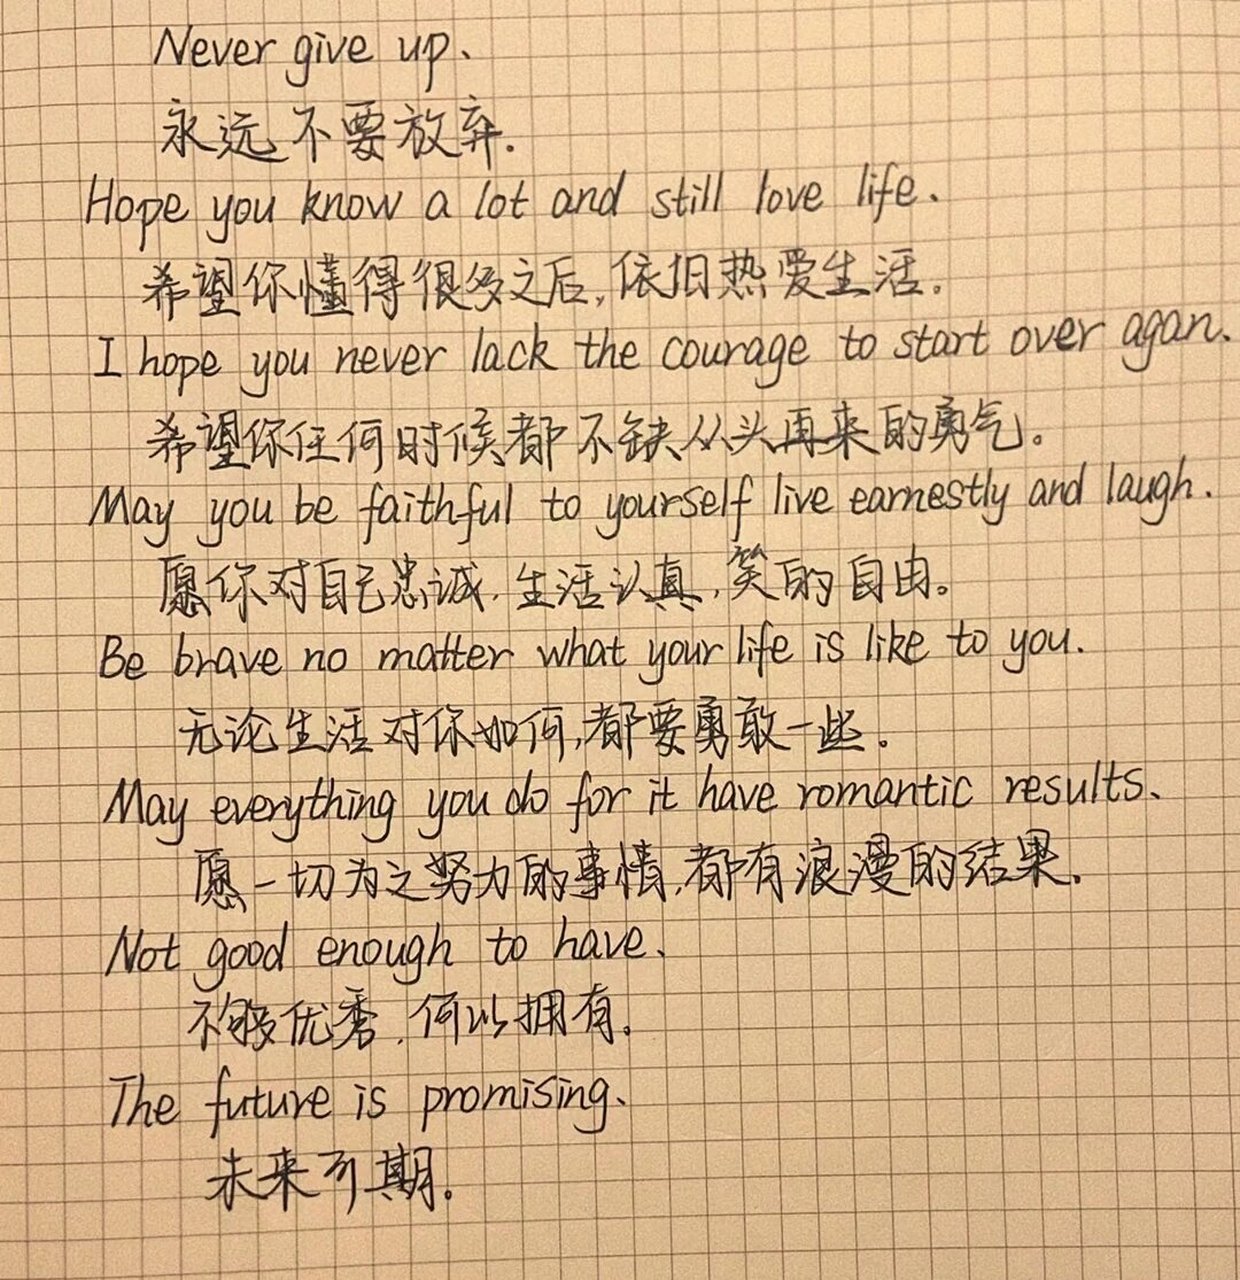 Never give up.
永远不要放弃.
Hope you know a lot and still love life.
希望你懂得很多之后,依旧热爱生活.
I hope you never lack the courage to start over agan.
希望你任何时候都不缺从头再来的勇气。
May you be faithful to yourself live earnestly and laugh.
愿你对自己忠诚,生活认真,笑的自由。
Be brave no matter what your life is like to you.
无论生活对你如何,都要勇敢一些。
May everything you do for it have romantic results.
愿一切为之努力的事情,都有浪漫的结果.
Not good enough to have.
不够优秀,何以拥有.
The future is promising.
未来可期.